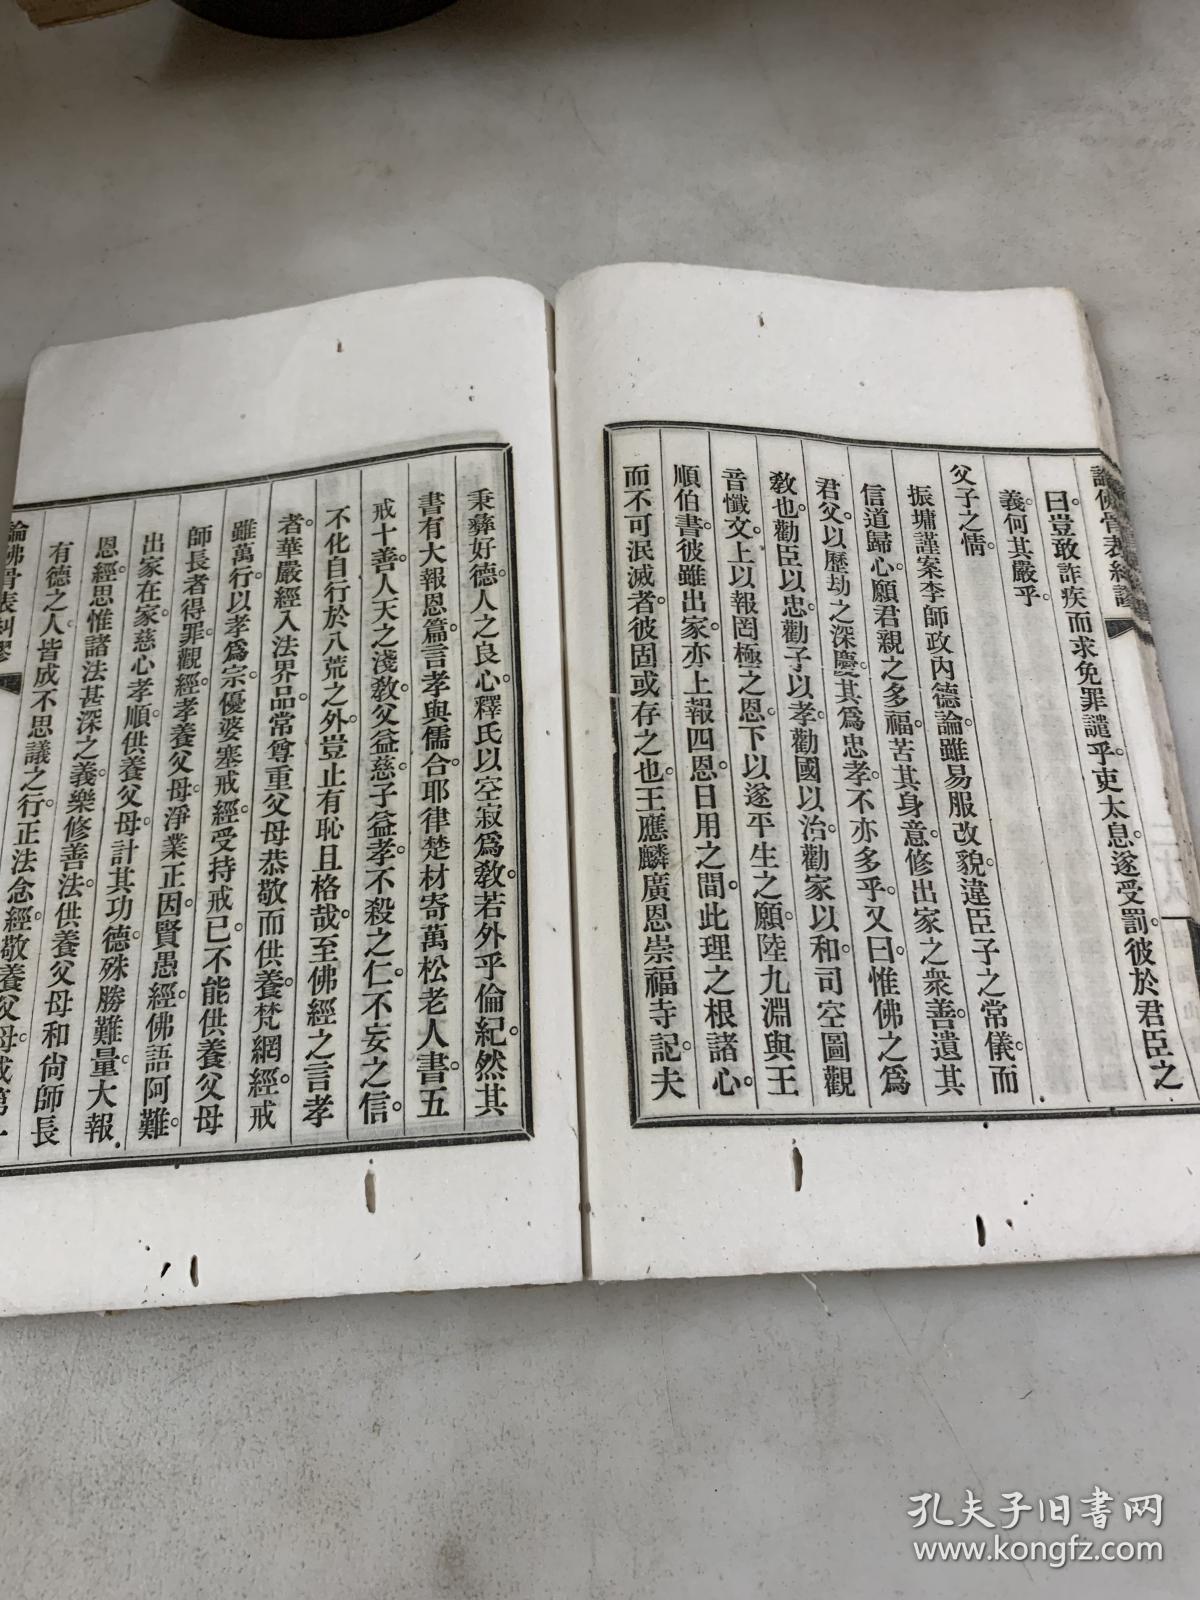 論佛骨表糾謬
曰。豈敢詐疾而求免罪譴乎。吏太息。遂受罰。彼於君臣之
義。何其嚴乎。
父子之情。
振墉謹案李師政內德論。雖易服改貌。違臣子之常儀。而
信道歸心。願君親之多福。苦其身意。修出家之衆善。遺其
君父。以歷劫之深慶。其爲忠孝。不亦多乎。又曰。惟佛之爲
教也。勸臣以忠。勸子以孝。勸國以治。勸家以和。司空圖觀
音懺文。上以報罔極之恩。下以遂平生之願。陸九淵與王
順伯書。彼雖出家。亦上報四恩。日用之間。此理之根諸心。
而不可泯滅者。彼固或存之也。王應麟廣恩崇福寺記。夫
秉彝好德。人之良心。釋氏以空寂爲教。若外乎倫紀。然其
書有大報恩篇。言孝與儒合。耶律楚材寄萬松老人書。五
戒十善。人天之淺教。父益慈。子益孝。不殺之仁。不妄之信。
不化自行於八荒之外。豈止有恥且格哉。至佛經之言孝
者。華嚴經入法界品。常尊重父母。恭敬而供養。梵網經。戒
雖萬行。以孝爲宗。優婆塞戒經。受持戒已。不能供養父母
師長者得罪。觀經。孝養父母。淨業正因。賢愚經。佛語阿難。
出家在家。慈心孝順。供養父母。計其功德。殊勝難量。大報
恩經。思惟諸法甚深之義。樂修善法。供養父母和尙師長
有德之人。皆成不思議之行。正法念經。敬養父母。
論佛骨表糾謬
孔夫子旧书网
www.kongfz.com